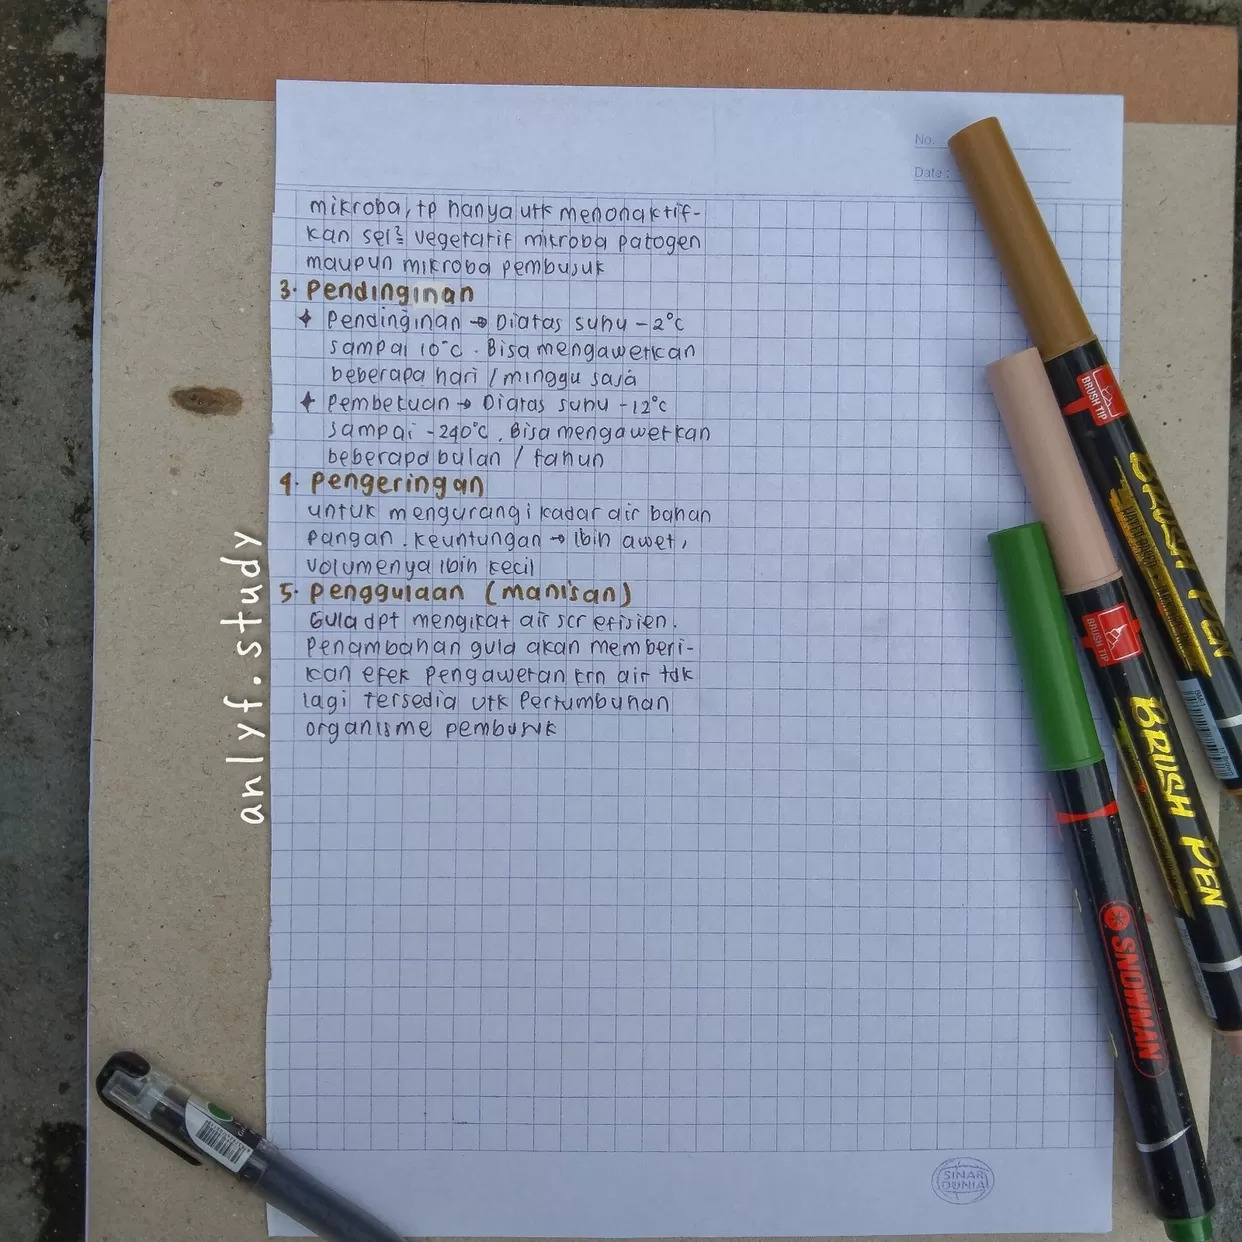 No.
Date :
mikroba, tp hanya utk menonaktif-
kan sel² vegetatif mikroba patogen
maupun mikroba pembusuk
3. Pendinginan
✦ Pendinginan → Diatas suhu -2°C
sampai 10°C. Bisa mengawetkan
beberapa hari / minggu saja
✦ Pembekuan → Diatas suhu -12°C
sampai -240°C. Bisa mengawetkan
beberapa bulan / tahun
4. Pengeringan
untuk mengurangi kadar air bahan
pangan. Keuntungan → lbih awet,
volumenya lbih kecil
5. Penggulaan (manisan)
Gula dpt mengikat air scr efisien.
Penambahan gula akan memberi-
kan efek pengawetan krn air tdk
lagi tersedia utk Pertumbuhan
organisme pembusuk
anlyf.study
BRUSH TIP
BRUSH PEN
BRUSH TIP
BRUSH PEN
SNOWMAN
SINAR
DUNIA